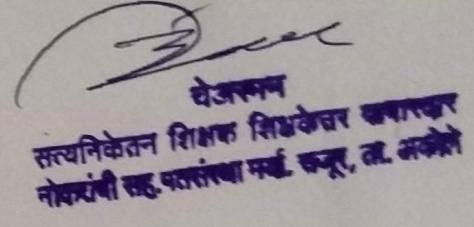 चेअरमन
सत्यनिकेतन शिक्षक शिक्षकेत्तर
नोकरांची सह. पतसंस्था मर्या. राजूर, ता. अकोले